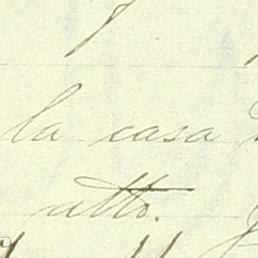 la casa
atto.